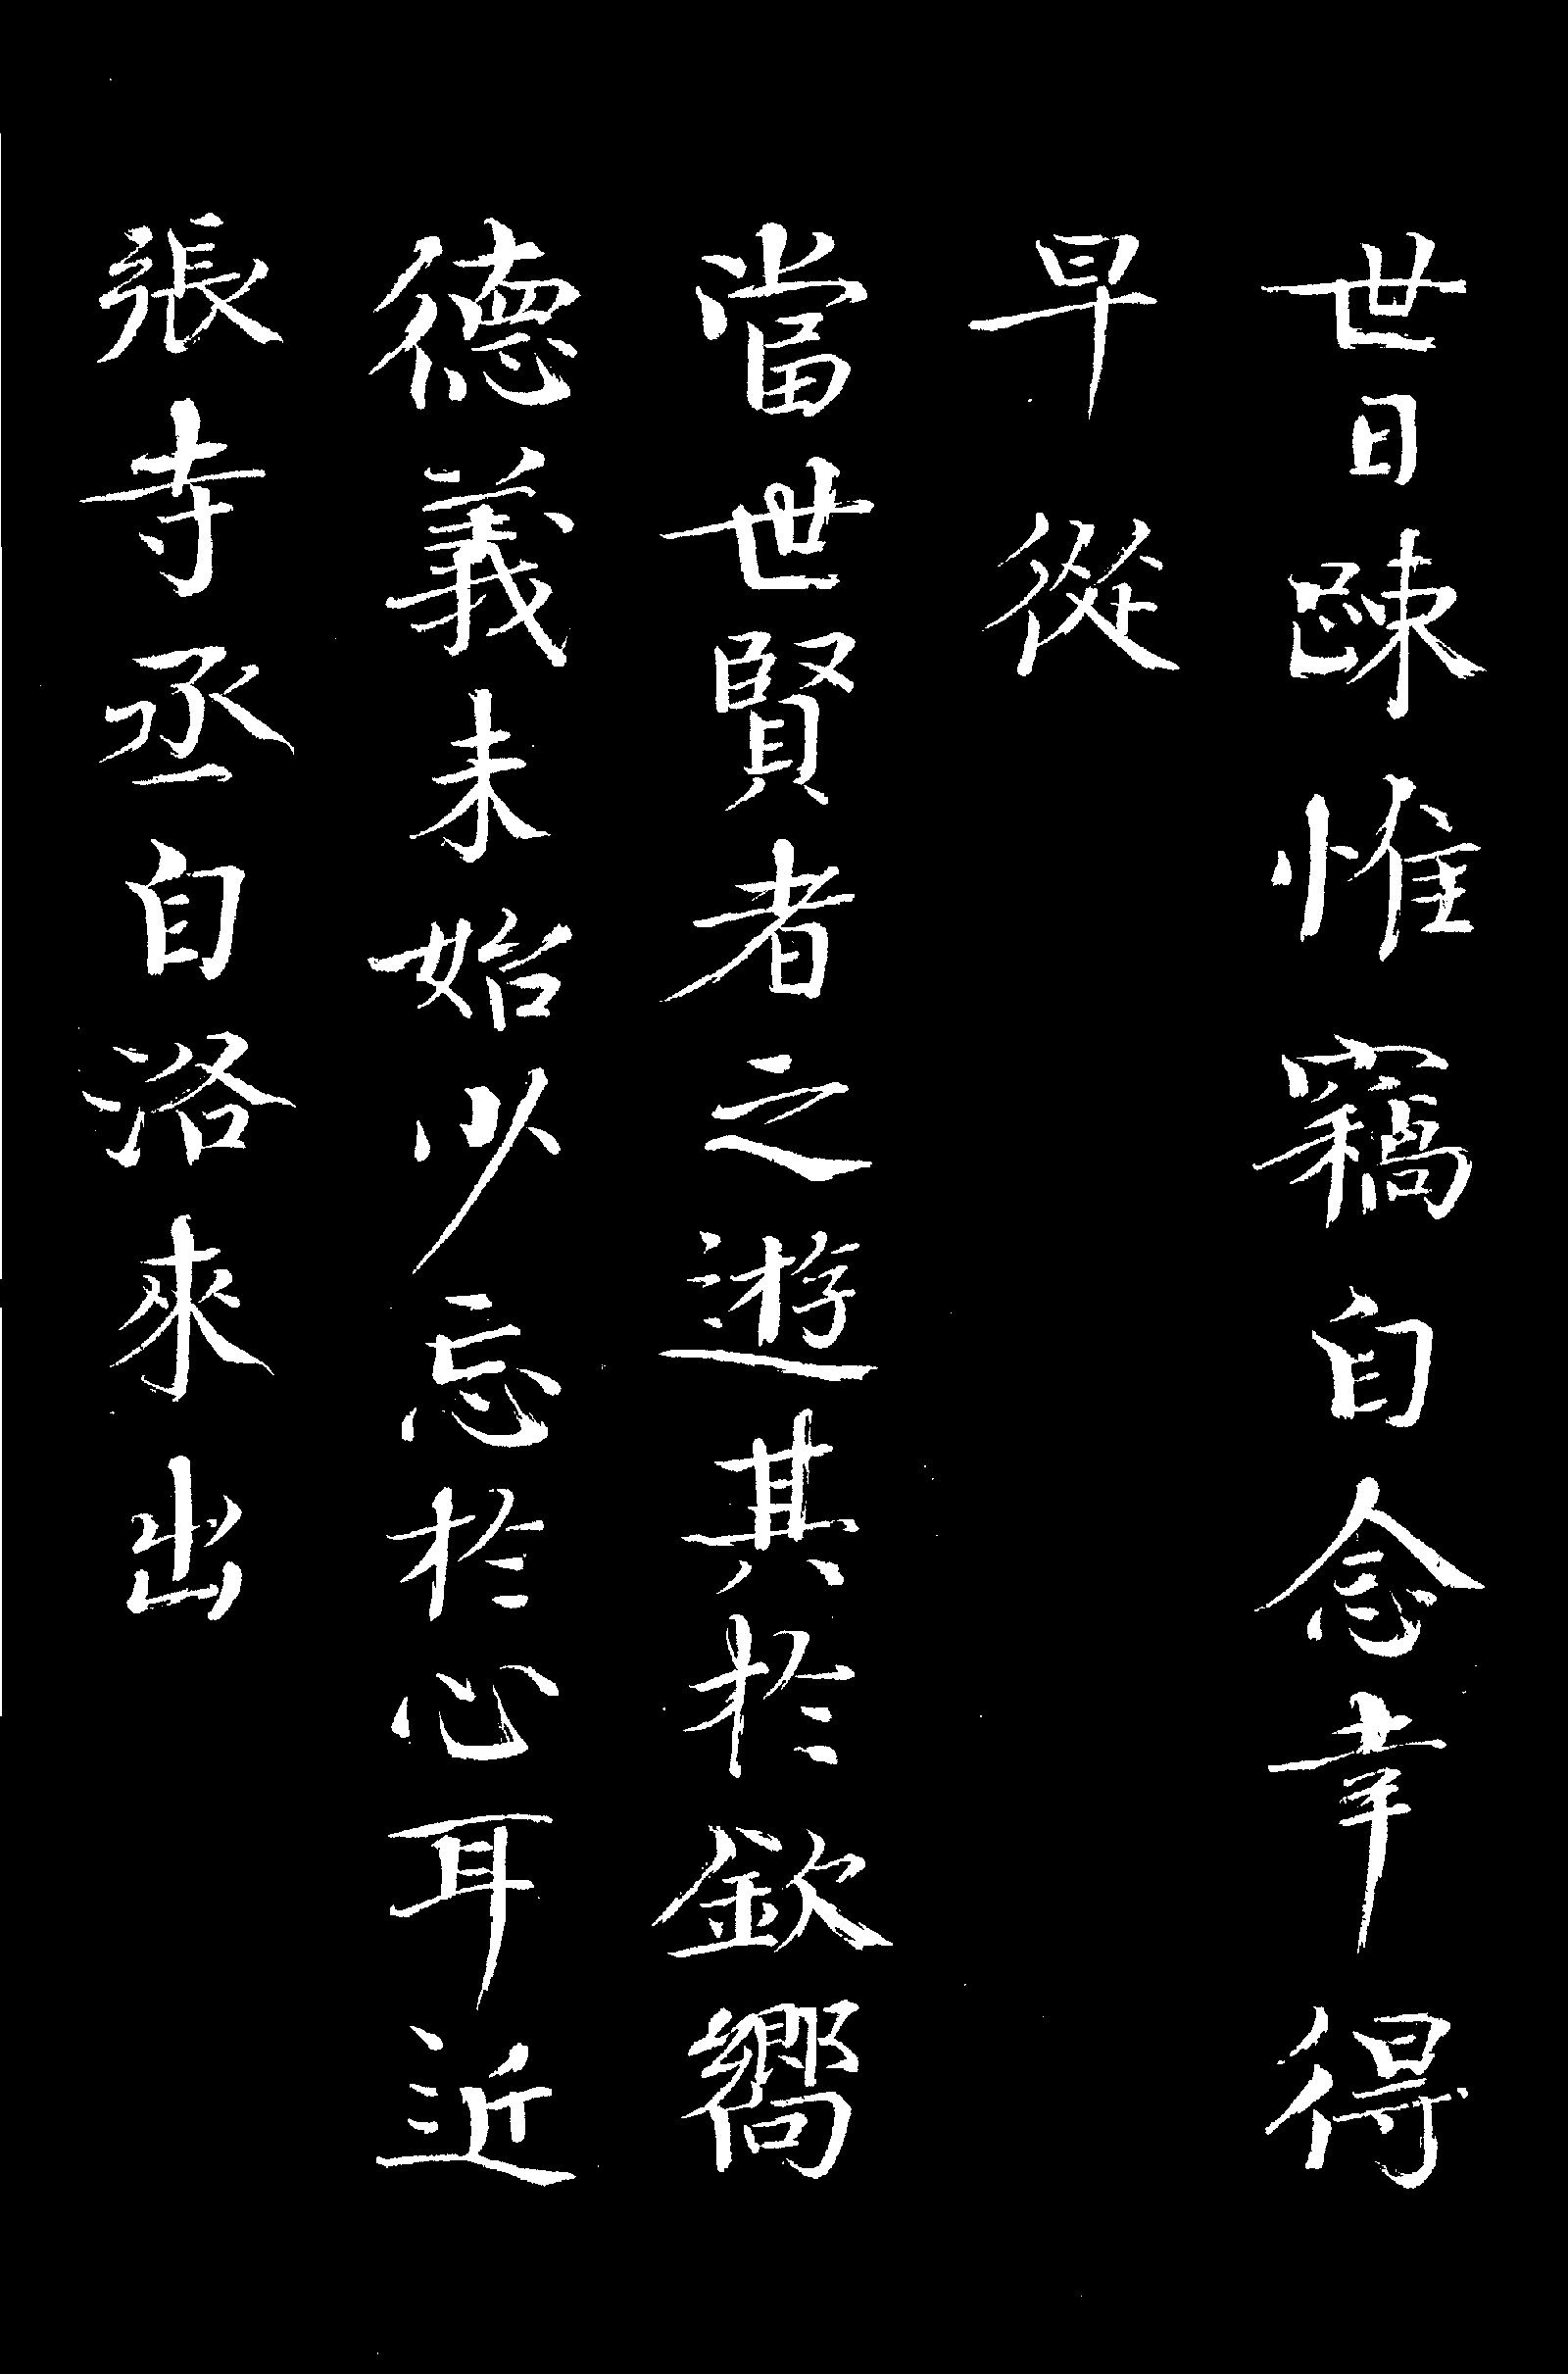 世日踈惟竊自念幸得
早從
當世賢者之遊其於欽嚮
德義未始少忘於心耳近
張寺丞自洛來出